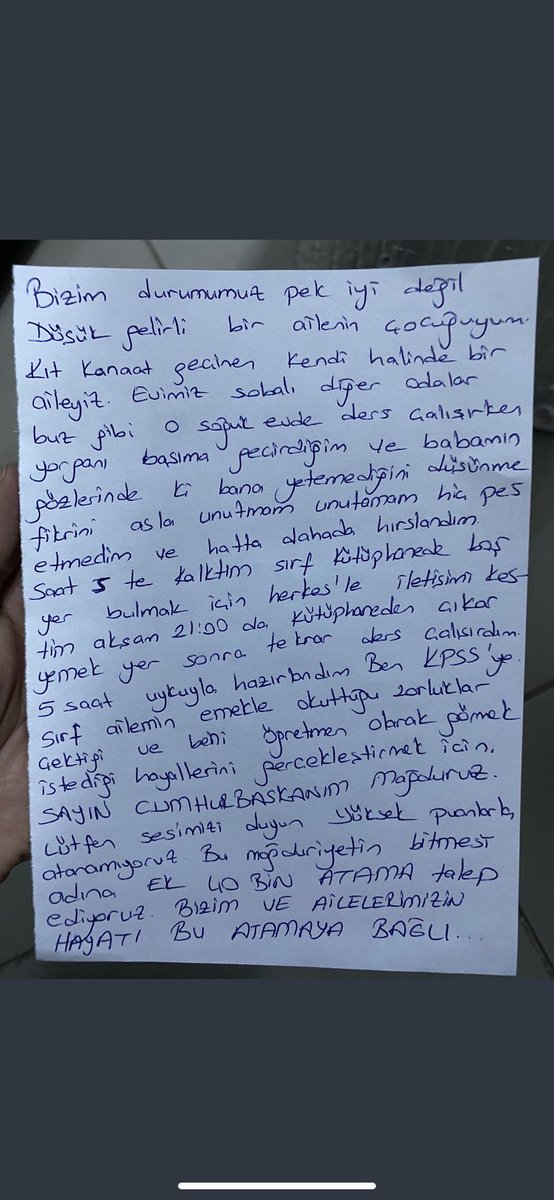 Bizim durumumuz pek iyi değil
Düşük gelirli bir ailenin çocuğuyum.
Kıt kanaat geçinen kendi halinde bir
aileyiz. Evimiz sobalı diğer odalar
buz gibi o soğuk evde ders çalışırken
yorganı başıma geçirdiğim ve babamın
gözlerinde ki bana yetemediğini düşünme
fikrini asla unutmam unutamam hiç pes
etmedim ve hatta dahada hırslandım.
Saat 5 te kalktım sırf kütüphanede boş
yer bulmak için herkes'le iletişimi kes-
tim akşam 21:00 da kütüphaneden çıkar
yemek yer sonra tekrar ders çalışırdım.
5 saat uykuyla hazırlandım Ben KPSS'ye.
Sırf ailemin emekle okuttuğu zorluklar
çektiği ve beni öğretmen olarak görmek
istediği hayallerini gerçekleştirmek için.
SAYIN CUMHURBAŞKANIM mağduruz.
Lütfen sesimizi duyun yüksek puanlarla,
atanamıyoruz. Bu mağduriyetin bitmesi
adına EK 40 BİN ATAMA talep
ediyoruz. BİZİM VE AİLELERİMİZİN
HAYATI BU ATAMAYA BAĞLI...